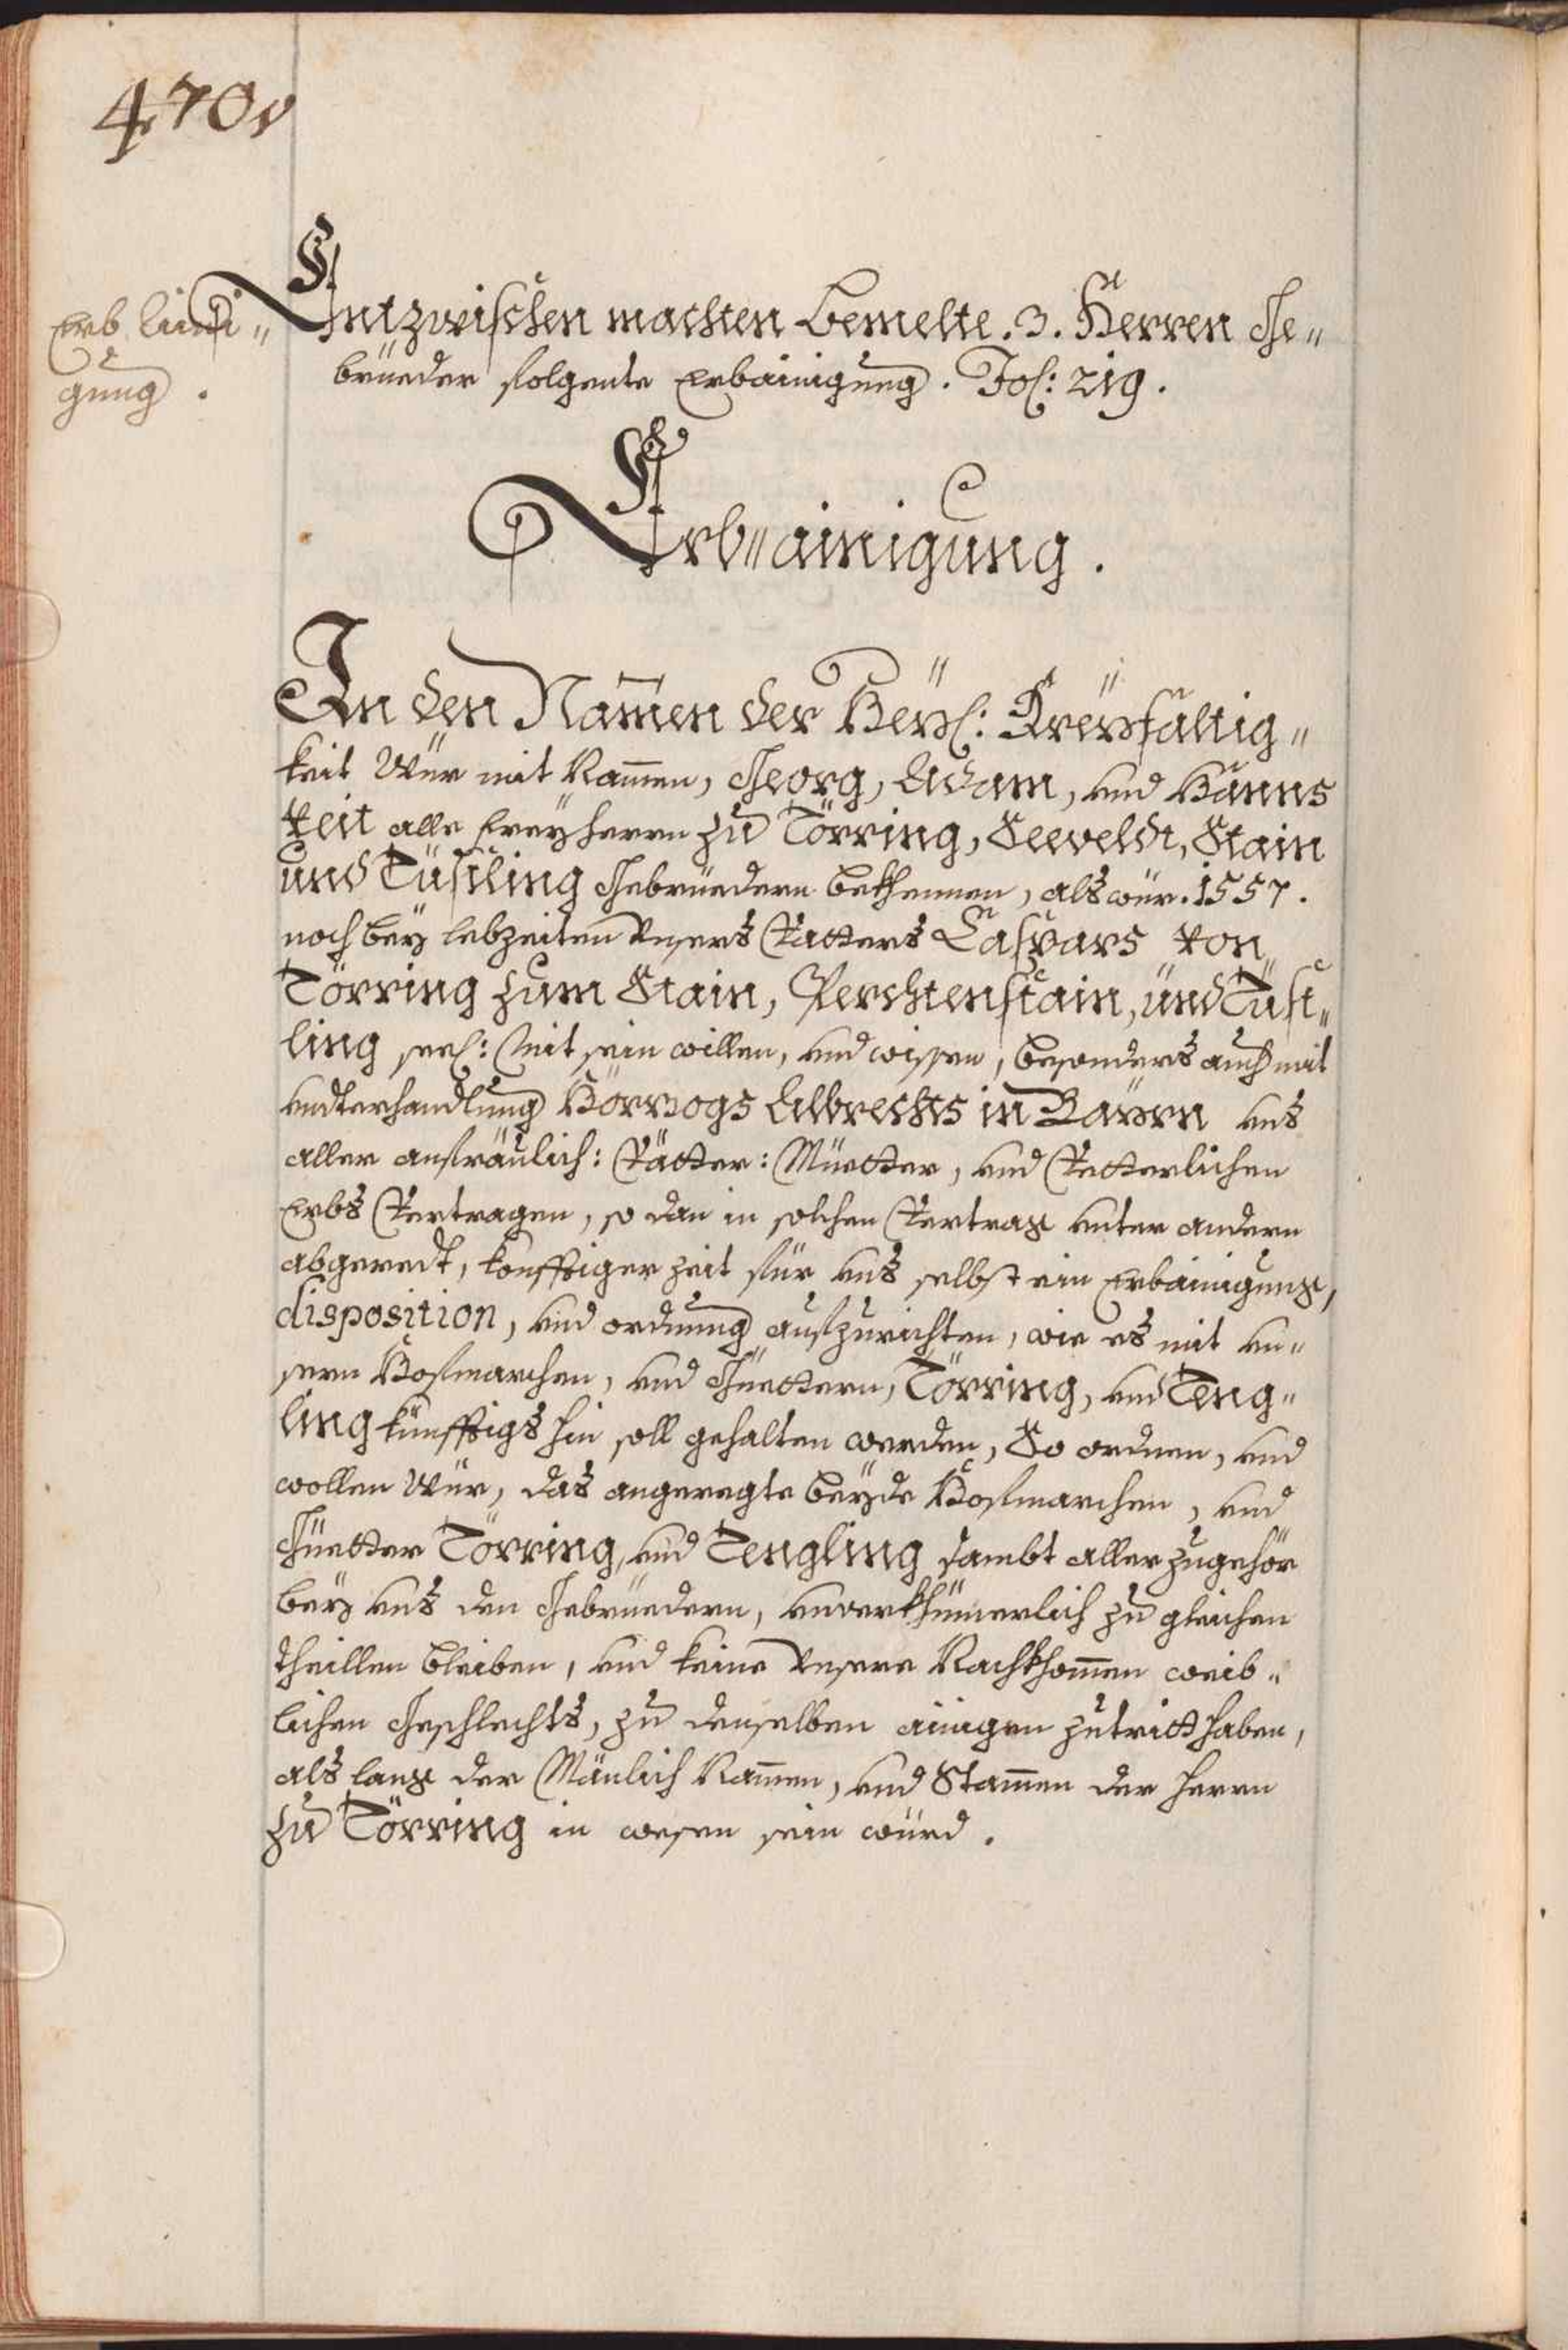 470v
Erb aini"
gung.
Entzwischen machten bemelte .3. Herren Ge"
brüeder folgente Erbainigung. Fol: 219.
Erb"ainigung.
In den Namen der Heyl: Dreyfaltig"
keit Wür mit Namen, Georg, Adam, und Hanns
Veit alle Freyherrn zu Törring, Seeveldt, Stain
und Tüsling Gebrüedern bekhennen, als wür .1557.
noch bey lebzeiten unsers Vatters Caspars von
Törring zum Stain, Perchtenstain, und Tüst"
ling seel: Mit sein willen, und wissen, besonders auch mit
undterhandlung Hörzogs Albrechts in Bayrn uns
aller anfräulich: Vätter: Müetter, und Vetterlichen
Erbs Vertragen, so dan in solchen Vertrag unter andern
abgeredt, konfftiger zeit für uns selbst ein Erbainigung,
disposition, und ordnung aufzurichten, wie es mit un"
sern Hofmarchen, und Güettern, Törring, und Teng"
ling künfftigs hin soll gehalten werden, So ordnen, und
wollen Wür, das angeregte beyde Hofmarchen, und
Güetter Törring, und Tengling sambt aller zugehör
bey uns den Gebrüedern, unverkhümerlich zu gleichen
theillen bleiben, und keine unsere Nachkhommen weib"
lichen Geschlechts, zu denselben ainigen zutritt haben,
als lang der Mänlich Namen, und Stammen der Herrn
zu Törring in wesen sein würd.